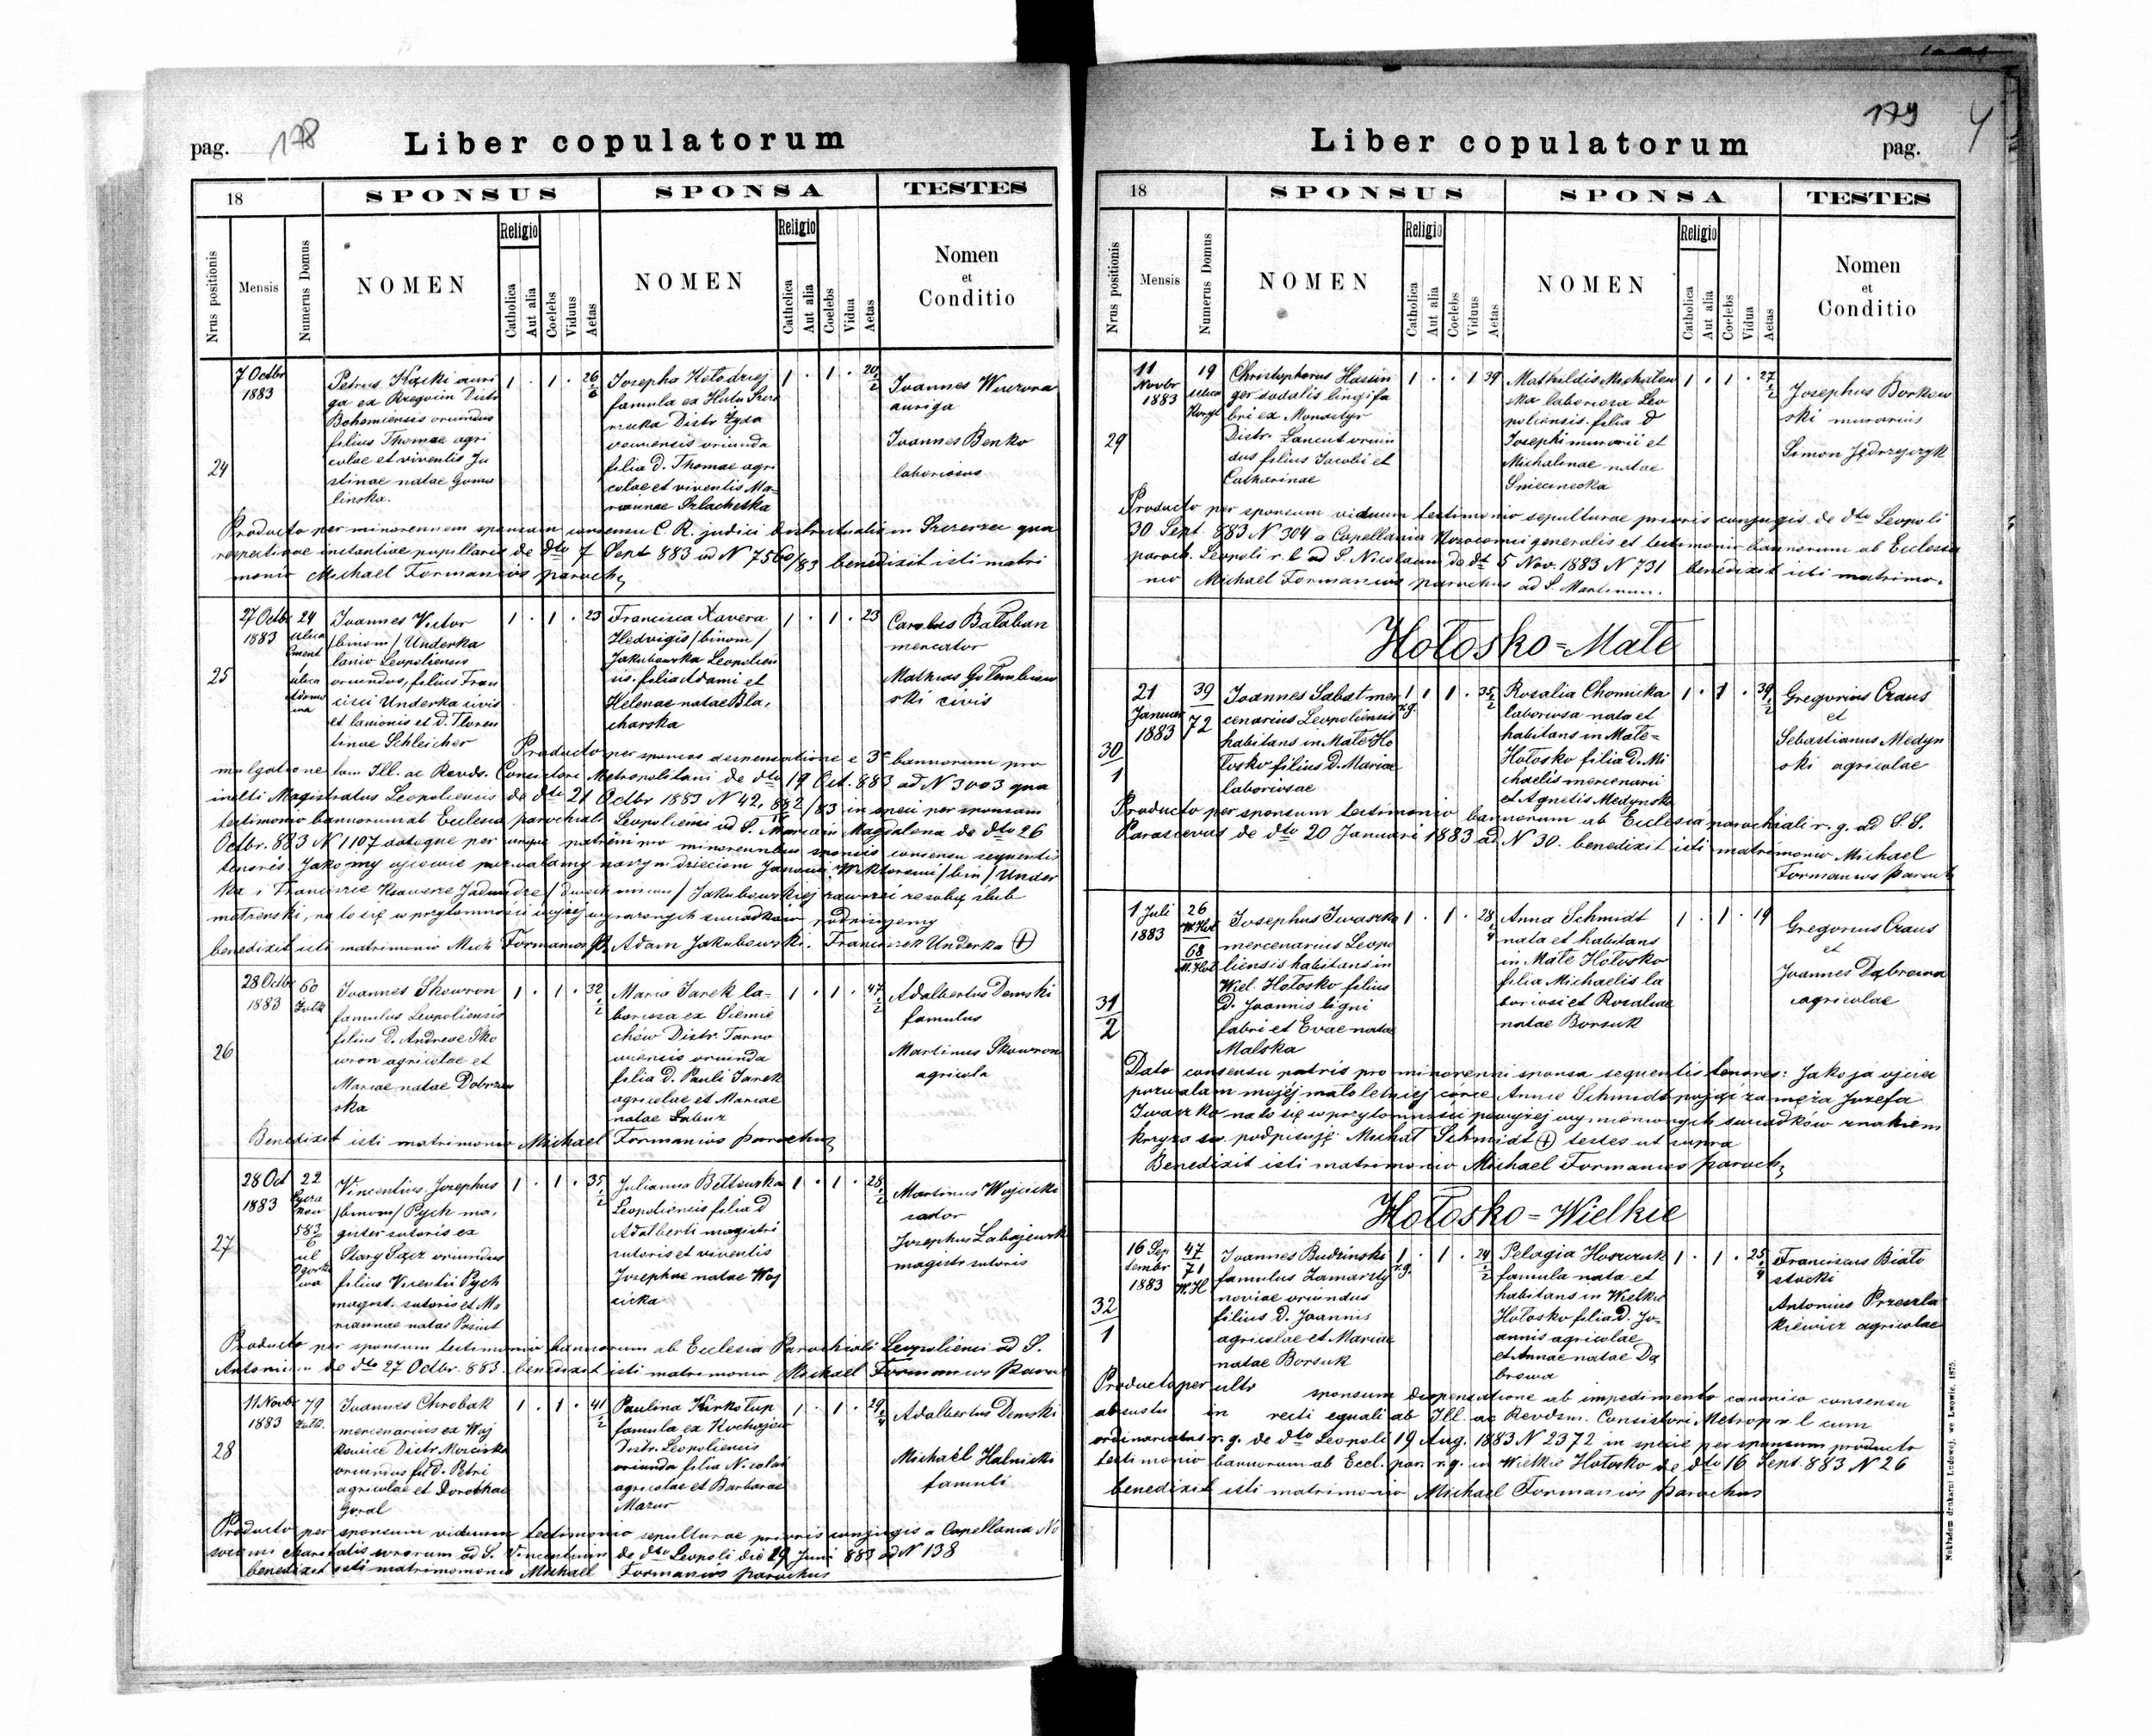 pag. 178
Liber copulatorum
18
SPONSUS
SPONSA
TESTES
Nrus positionis
Mensis
Numerus Domus
NOMEN
Religio
Catholica
Aut alia
Coelebs
Viduus
Aetas
NOMEN
Religio
Catholica
Aut alia
Coelebs
Vidua
Aetas
Nomen
et
Conditio
24
7 Octbr
1883
Petrus Kącki auri
ga ex Distr
Bohemiensis oriundus
filius Thomae agri
colae et viventis Ju
stinae natae Gomu
linska.
1 . 1 . 26
Josepha Kołodziej
famula ex Huta
Distr Żyda
oriunda
filia d. Thomae agri
colae et viventis Ma=
riannae Szlachetka
1 . 1 . 20 1/2
Joannes
auriga
Joannes Benko
laboriosus
Producto per minorennem sponsam consensu C. R. judicii districtualis in Szczerzec qua
respectivae instantiae pupillaris de dto 7 Sept 883 ad N 7560/83 benedixit isti matri
monio Michael Formanios parochus
25
27 Octbr
1883
24
ulica
1
ulica
Joannes Victor
/binom/ Underka
lanio Leopoliensis
oriundus, filius Fran
cisci Underka civis
et lanionis et d. Floren
tinae Schleicher
1 . 1 . 23
Francisca Xavera
Hedvigis /binom/
Jakubowska Leopolien
sis. filia Adami et
Helenae natae Bla,
charska
1 . 1 . 23
Carolus Bałaban
mercator
Mathias Gołembiow
ski civis
Producto per sponsos dispensatione e 3a bannorum pro
mulgatione tam Ill. ac Revds. Consistori Metropolitani de dto 19 Oct. 883 ad N 3003 qua
inclti Magistratus Leopoliensis de dto 21 Octbr 1883 N 42,882/83 in specie per sponsam
testimonio bannorum ab Ecclesia parochiali Leopoliensi ad S. Mariam Magdalena de dto 26
Octbr. 883 N 1107 datoque per utrumque patrem pro minorennibus sponsis consensu sequentis
tenoris Jako my ojcowie pozwalamy naszym dzieciom Janowi Wiktorowi /bin/ Under
ka i Franciszce Ksawerze Jadwidze /dwoch imion/ Jakubowskiej zawrzeć ze sobą ślub
małżeński, na to się w przytomności wyżej wyrażonych świadków podpisujemy
benedixit isti matrimonio Mich Formanios Adam Jakubowski. Franciszek Underka (+)
26
28 Octbr
1883
60
Żołk
Joannes Skowron
famulus Leopoliensis
filius d. Andreae Sko
wron agricolae et
Mariae natae Dobrzan
ska
1 . 1 . 32 1/2
Maria Jarek la=
boriosa ex Siemie
chów Distr. Tarno
viensis oriunda
filia d. Pauli Jarek
agricolae et Mariae
natae Łabuz
1 . 1 . 47 1/2
Adalbertus Demski
famulus
Martinus Skowron
agricola
Benedixit isti matrimonio Michael Formanios parochus
27
28 Oct
1883
22
583
6
ul
Vincentius Josephus
/binom/ Pych ma,
gister sutoris ex
Stary Sącz oriundus
filius Vicentii Pych
magist. sutoris et Ma
riannae natae
1 . 1 . 35 1/2
Julianna Bełtowska
Leopoliensis filia d
Adalberti magistri
sutoris et viventis
Josephae natae Woj
cicka
1 . 1 . 28 1/2
Martinus Wojcicki
Josephus Łabajewski
magistr sutoris
Producto per sponsum testimonio bannorum ab Ecclesia Parochiali Leopoliensi ad S.
Antonium de dto 27 Octbr. 883. benedixit isti matrimonio Michael Formanios Paroch
28
11 Novbr
1883
79
Żołk.
Joannes Chrobak
mercenarius ex Woj
kowice Distr Mościska
oriundus fil d. Petri
agricolae et Dorotheae
Goral
1 . 1 . 41 1/2
Paulina Kirkołup
famula ex
Distr. Leopoliensis
oriunda filia Nicolai
agricolae et Barbarae
Mazur
1 . 1 . 29 1/4
Adalbertus Demski
Michaël Halnicki
famuli
Producto per sponsum viduum testimonio sepulturae prioris conjugis a Capellania No
socomii ad S. Vincentium de dto Leopoli die 29 Juni 883 ad N 138
benedixit isti matrimonio Michael Formanios parochus
179
Liber copulatorum
pag.
18
SPONSUS
SPONSA
TESTES
Nrus positionis
Mensis
Numerus Domus
NOMEN
Religio
Catholica
Aut alia
Coelebs
Viduus
Aetas
NOMEN
Religio
Catholica
Aut alia
Coelebs
Vidua
Aetas
Nomen
et
Conditio
29
11
Novbr
1883
19
ulica
Christophorus Hassin
ger sodalis lingifa
bri ex Monastyr
Distr. Łancut oriun
dus filius Jacobi et
Catharinae
1 . . 1 39
Mathildis Michałow
ska laboriosa Leo
poliensis. filia d
Josephi murarii et
Michalinae natae
Sniecinecka
1 . 1 . 27 1/2
Josephus Borkow
ski murarius
Simon Jędrzejczyk
Producto per sponsum viduum testimonio sepulturae prioris conjugis de dto Leopoli
30 Sept. 883 N 304 a Capellania Nosocomii generalis et testimonio bannorum ab Ecclesia
paroch. Leopoli r. l. ad S. Nicolaum de dt 5 Nov. 1883 N 731 benedixit isti matrimo,
nio Michael Formanios parochus ad S. Martinum.
Hołosko=Małe
30
1
21
Januar
1883
39
72
Joannes Sabat mer
cenarius Leopoliensis
habitans in Małe Ho
łosko filius d. Mariae
laboriosae
1 r.g. 1 1 . 35 1/2
Rosalia Chomicka
laboriosa nata et
habitans in Małe=
Hołosko filia d. Mi
chaelis mercenarii
et Agnetis Medynska
1 . 1 . 39 1/2
Gregorius Craus
et
Sebastianus Medyn
ski agricolae
Producto per sponsum testimonio bannorum ab Ecclesia parochiali r. g. ad S. S.
Parascevas de dto 20 Januari 1883 ad N 30. benedixit isti matrimonio Michael
Formanios paroch
31
2
1 Juli
1883
26
W. Hoł
68
M. Hoł
Josephus Iwaszko
mercenarius Leopo
liensis habitans in
Wiel. Hołosko filius
d. Joannis ligni
fabri et Evae natae
Malska
1 . 1 . 28 1/4
Anna Schmidt
nata et habitans
in Małe Hołosko
filia Michaelis la
boriosi et Rosaliae
natae Borsuk
1 . 1 . 19
Gregorius Craus
et
Joannes Dąbrowa
agricolae
Dato consensu patris pro minorenni sponsa sequentis tenores: Jako ja ojciec
pozwalam mojéj małoletniej córce Annie Schmidt pójść za męża Józefa
Iwaszko na to się w przytomności powyżej wymienionych świadków znakiem
krzyża św. podpisuję Michał Schmidt (+) testes ut supra
Benedixit isti matrimonio Michael Formanios paroch,
Hołosko=Wielkie
32
1
16 Sep
tembr
1883
47
71
W. H
Joannes Budzinski
famulus Zamarsty
noviae oriundus
filius d. Joannis
agricolae et Mariae
natae Borsuk
1 r.g. . 1 . 24 1/2
Pelagia
famula nata et
habitans in Wielkie
Hołosko filia d. Jo=
annis agricolae
et Annae natae Dą
browa
1 . 1 . 25 1/4
Franciscus Biało
stocki
Antonius Przeszla
kiewicz agricolae
Producto per sponsum dispensatione ab impedimento canonico consensu
ab Ill. ac Revdsm. Consistori Metrop r. l cum
ordinariatus r. g. de dto Leopoli 19 Aug. 1883 N 2372 in specie per sponsum producto
testimonio bannorum ab Eccl. par. r. g. in Wielkie Hołosko de dto 16 Sept 883 N 26
benedixit isti matrimonio Michael Formanios parochus
Nakładem drukarni Ludowej, we Lwowie. 1875.